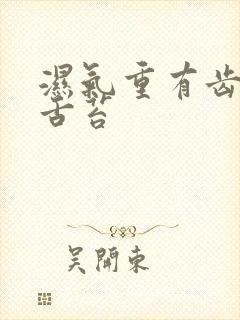 濕氣重有齒
舌苔
吴開東